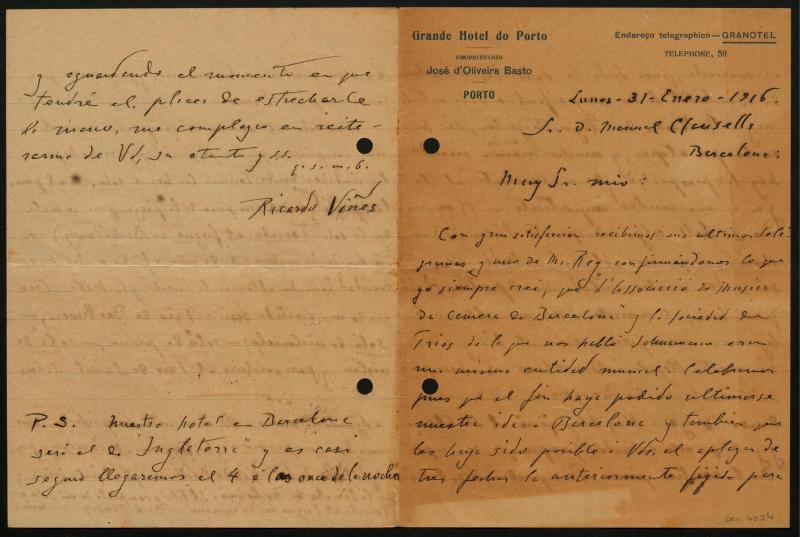 Grande Hotel do Porto
PROPRIETARIO
José d'Oliveira Basto
PORTO
Endereço telegraphico — GRANOTEL
TELEPHONE, 59
Lunes - 31 - Enero - 1916.
Sr. D. Manuel Clausells
Barcelona:
Muy Sr. mio:
Con gran satisfaccion recibimos sus ultimos tele-
gramas y uno de Mr. Rey confirmándonos lo que
yo siempre creí, que "l'Associació de Musica
da Camera de Barcelona" y la Sociedad de
Trios de la que nos habló Schumann eran
una misma entidad musical. Celebramos
pues que al fin haya podido ultimarse
nuestra ida á Barcelona y tambien que
les haya sido posible á Vds. el aplazar de
tres fechas la anteriormente fijada para
y aguardando el momento en que
tendré el placer de estrecharle
la mano, me complazco en reite-
rarme de Vd, su atento y s.s.
q. s. m. b.
Ricardo Viñes
P. S. Nuestro hotel en Barcelona
será el de "Inglaterra" y es casi
seguro llegaremos el 4 á las once de la noche
Doc. 4024